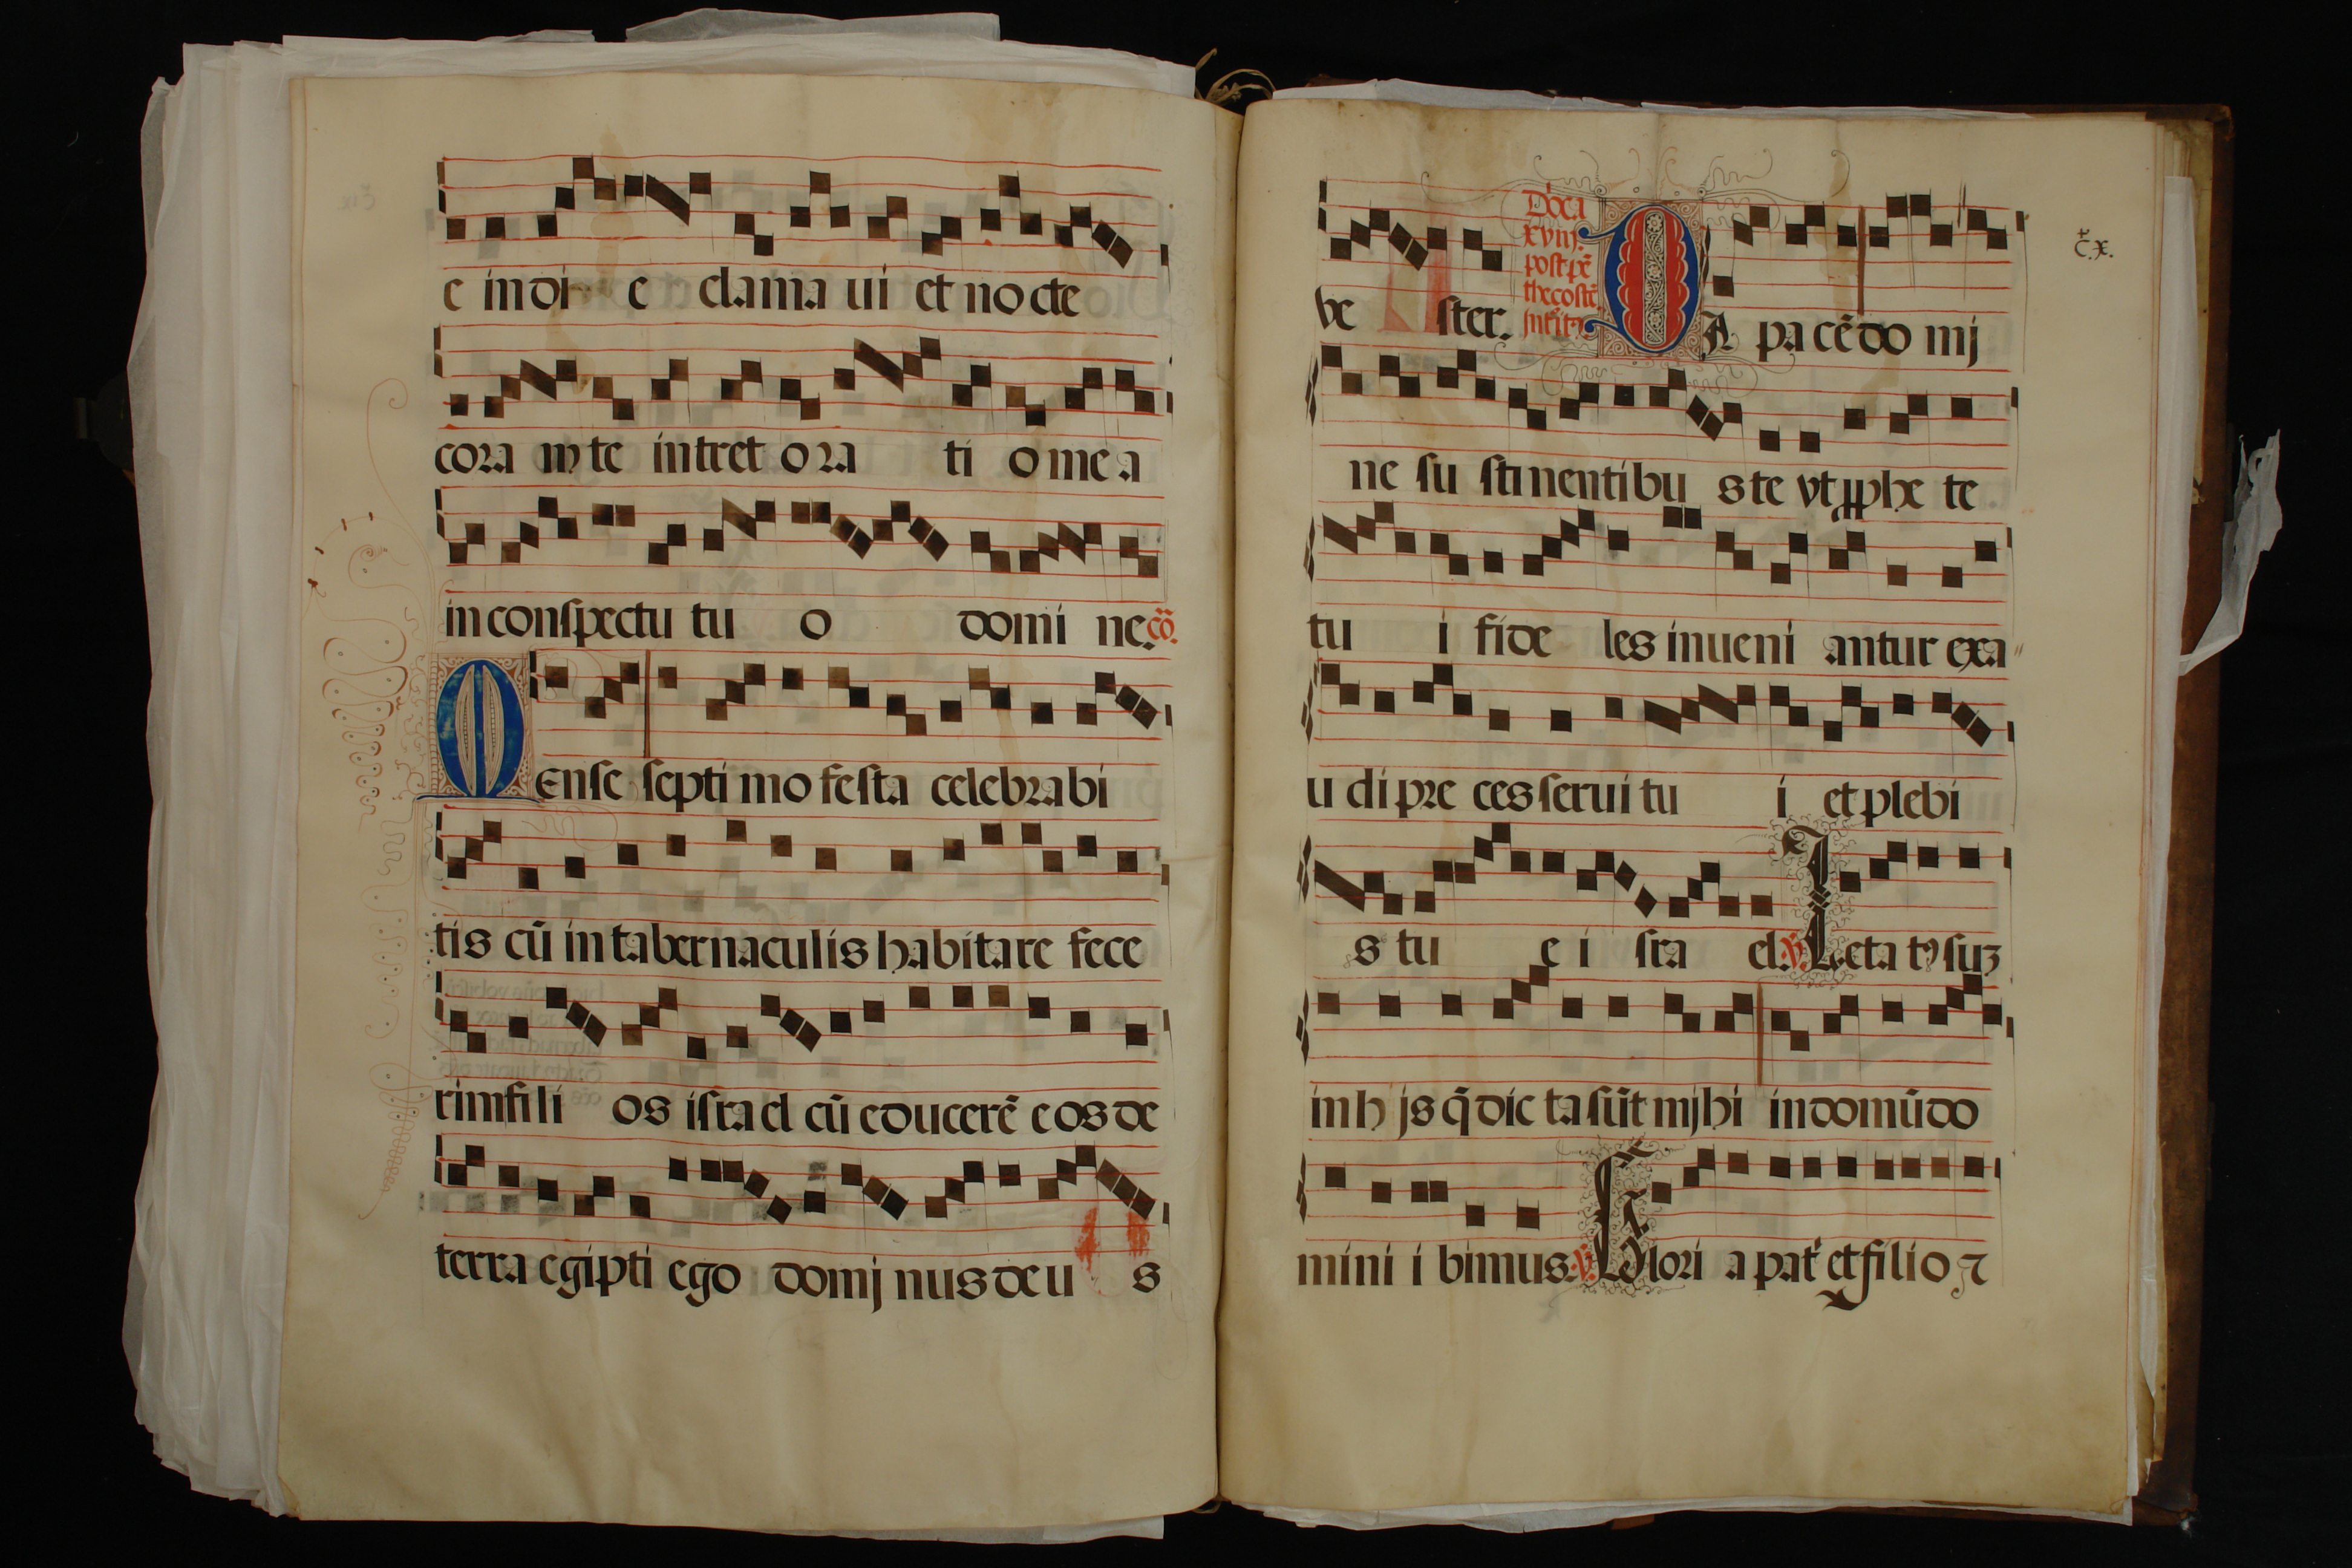 e in di e clama ui et no cte
cora m te intret o ra ti o me a
in conspectu tu o domi ne. cō.
Mense septi mo festa celebrabi
tis cū in tabernaculis habitare fece
rim fili os isra el cū educerē e os de
terra egipti ego domj nus de u s
č.x.
ve ster. Dōca xviij. post pē thecostē. Intrōit9 DA pa cē do mj
ne su sti nentibu s te vt ꝓphe te
tu i fide les inueni antur exa
u di pre ces serui tu i et plebi
s tu e i sra el. ℣. Leta tꝰ suz
in h js q̄ dic ta sūt mjhi in domū do
mini i bimus. ℣. Glori a pat' et filio ⁊